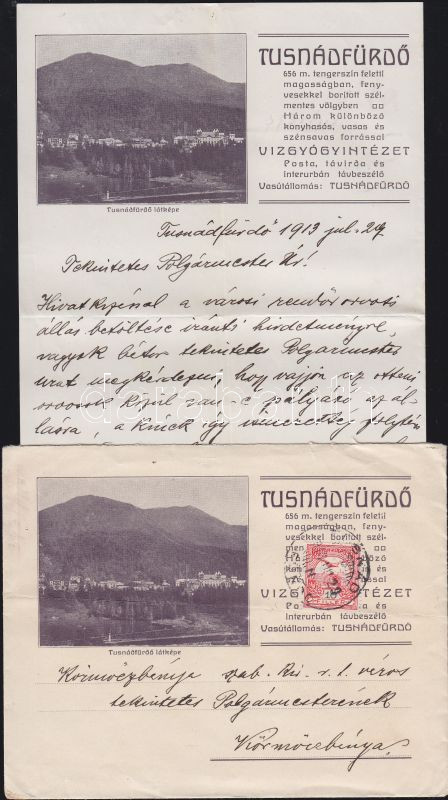 TUSNÁDFÜRDŐ
656 m. tengerszin feletti
magosságban, feny-
vesekkel borított szél-
mentes völgyben
Három különböző
konyhasós, vasas és
szénsavas forrással
VIZGYÓGYINTÉZET
Posta, távirda és
interurbán távbeszélő
Vasútállomás: TUSNÁDFÜRDŐ
Tusnádfürdő látképe
Tusnádfürdő 1913 jul. 29
Tekintetes Polgármester Úr!
Hivatkozással a városi rendőrorvosi
állás betöltése iránti hirdetményre,
vagyok bátor tekintetes Polgármester
urat megkérdezni, hogy vajjon az otteni
orvosok közül van-e pályázó az ál-
lásra, a kinek így folytán
TUSNÁDFÜRDŐ
656 m. tengerszin feletti
magosságban, feny-
vesekkel borított szél-
VIZ
interurbán távbeszélő
Vasútállomás: TUSNÁDFÜRDŐ
Tusnádfürdő látképe
Körmöczbánya szab. kir. város
tekintetes Polgármesterének
Körmöczbánya